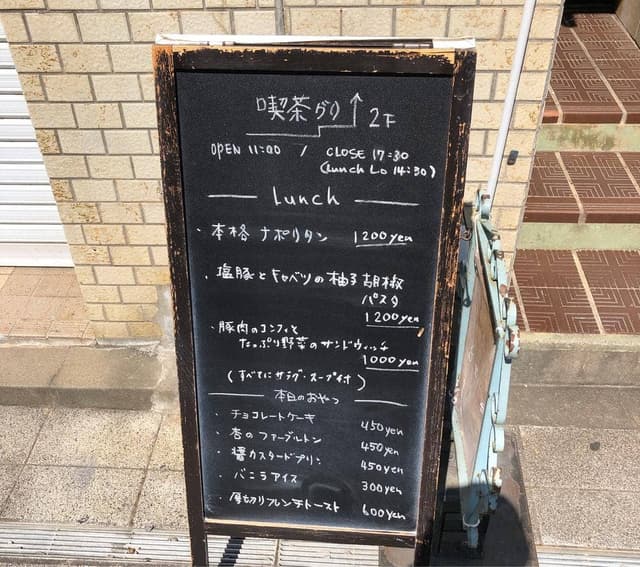 喫茶グリ↑2F
OPEN 11:00 / CLOSE 17:30
(Lunch Lo 14:30)
Lunch
・本格ナポリタン 1200yen
・塩豚とキャベツの柚子胡椒
パスタ
1200yen
・豚肉のコンフィと
たっぷり野菜のサンドウィッチ
1000yen
(すべてにサラダ・スープ付)
本日のおやつ
・チョコレートケーキ 450yen
・杏のファーブルトン 450yen
・醤カスタードプリン 450yen
バニラアイス 300yen
・厚切りフレンチトースト 600yen